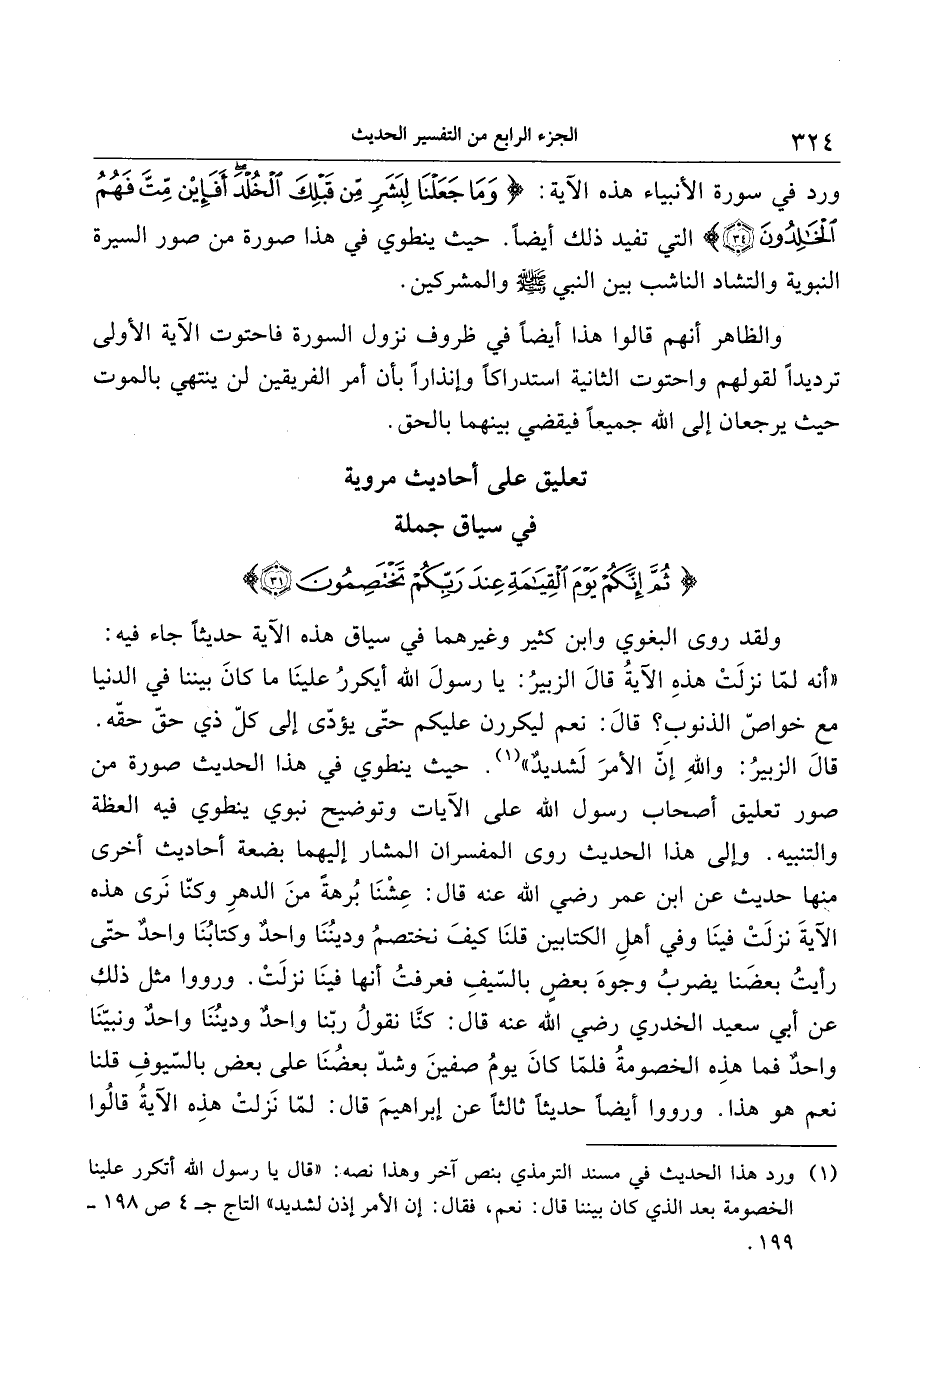 ٣٢٤ الجزء الرابع من التفسير الحديث
ورد في سورة الأنبياء هذه الآية: ﴿ وَمَا جَعَلْنَا لِبَشَرٍ مِّن قَبْلِكَ ٱلْخُلْدَۖ أَفَإِي۟ن مِّتَّ فَهُمُ
ٱلْخَـٰلِدُونَ ٣٤﴾ التي تفيد ذلك أيضاً. حيث ينطوي في هذا صورة من صور السيرة
النبوية والتشاد الناشب بين النبي ﷺ والمشركين.
والظاهر أنهم قالوا هذا أيضاً في ظروف نزول السورة فاحتوت الآية الأولى
ترديداً لقولهم واحتوت الثانية استدراكاً وإنذاراً بأن أمر الفريقين لن ينتهي بالموت
حيث يرجعان إلى الله جميعاً فيقضي بينهما بالحق.
تعليق على أحاديث مروية
في سياق جملة
﴿ ثُمَّ إِنَّكُمْ يَوْمَ ٱلْقِيَـٰمَةِ عِندَ رَبِّكُمْ تَخْتَصِمُونَ ٣١﴾
ولقد روى البغوي وابن كثير وغيرهما في سياق هذه الآية حديثاً جاء فيه:
«أنه لمّا نزلَتْ هذهِ الآيةُ قالَ الزبيرُ: يا رسولَ الله أيكررُ علينَا ما كانَ بيننا في الدنيا
مع خواصّ الذنوبِ؟ قالَ: نعم ليكررن عليكم حتّى يؤدّى إلى كلّ ذي حقّ حقّه.
قالَ الزبيرُ: واللهِ إنّ الأمرَ لَشديدٌ»(١). حيث ينطوي في هذا الحديث صورة من
صور تعليق أصحاب رسول الله على الآيات وتوضيح نبوي ينطوي فيه العظة
والتنبيه. وإلى هذا الحديث روى المفسران المشار إليهما بضعة أحاديث أخرى
منها حديث عن ابن عمر رضي الله عنه قال: عِشْنَا بُرهةً منَ الدهرِ وكنّا نَرى هذه
الآيةَ نزلَتْ فينَا وفي أهلِ الكتابين قلنَا كيفَ نختصمُ ودينُنَا واحدٌ وكتابُنَا واحدٌ حتّى
رأيتُ بعضَنا يضربُ وجوهَ بعضٍ بالسّيفِ فعرفتُ أنها فينَا نزلَتْ. ورووا مثل ذلك
عن أبي سعيد الخدري رضي الله عنه قال: كنَّا نقولُ ربّنا واحدٌ ودينُنَا واحدٌ ونبيّنَا
واحدٌ فما هذِه الخصومةُ فلمّا كانَ يومُ صفينَ وشدّ بعضُنَا على بعض بالسّيوفِ قلنا
نعم هو هذا. ورووا أيضاً حديثاً ثالثاً عن إبراهيمَ قال: لمّا نَزلتْ هذِه الآيةُ قالُوا
(١) ورد هذا الحديث في مسند الترمذي بنص آخر وهذا نصه: «قال يا رسول الله أتكرر علينا
الخصومة بعد الذي كان بيننا قال: نعم، فقال: إن الأمر إذن لشديد» التاج جـ ٤ ص ١٩٨ -
١٩٩.